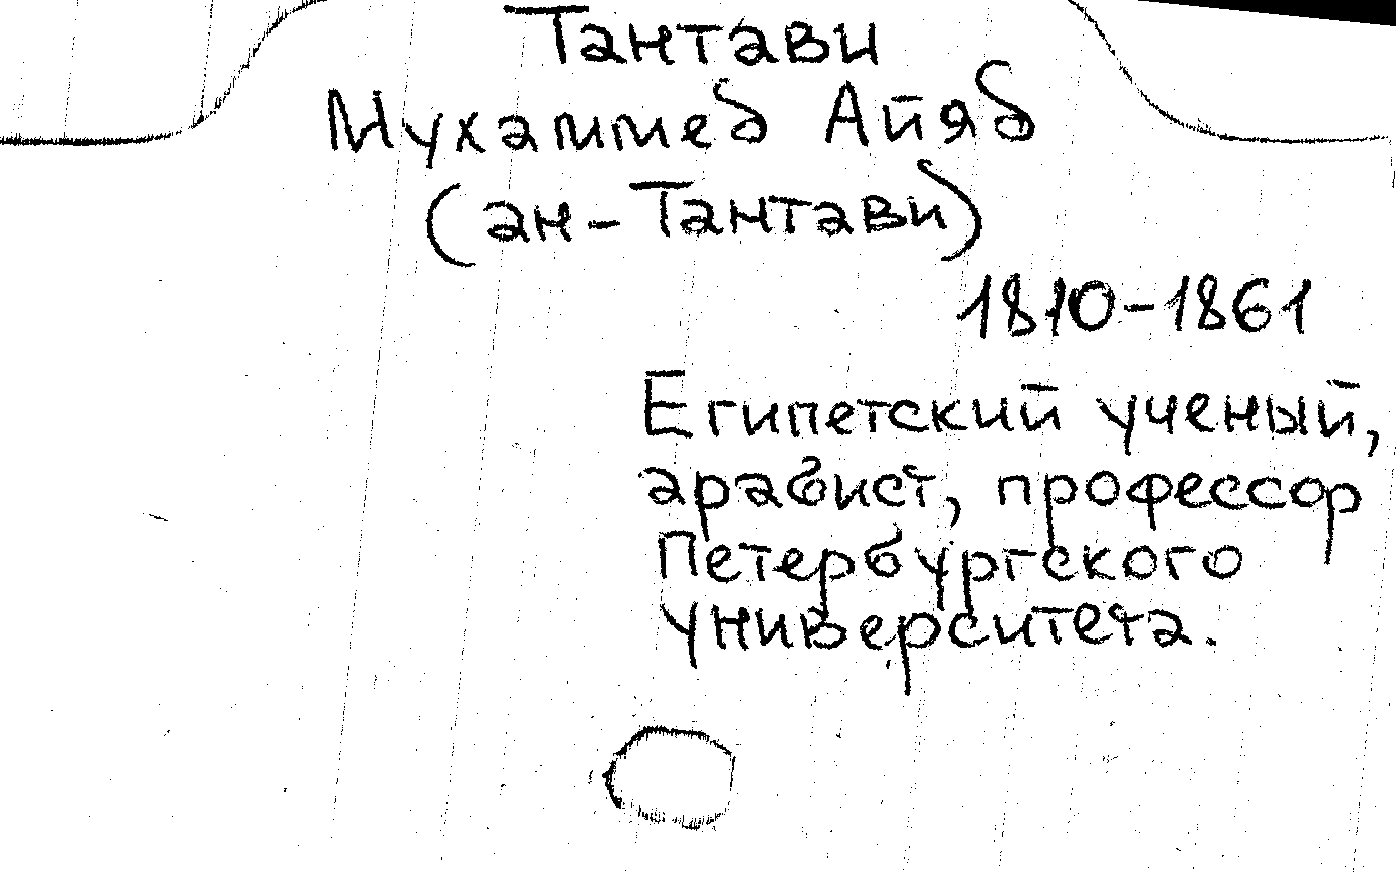 Тантави
Мухаммед Айяд
(ан-Тантави)
1810-1861
Египетский ученый,
арабист, профессор
Петербургского
университета.